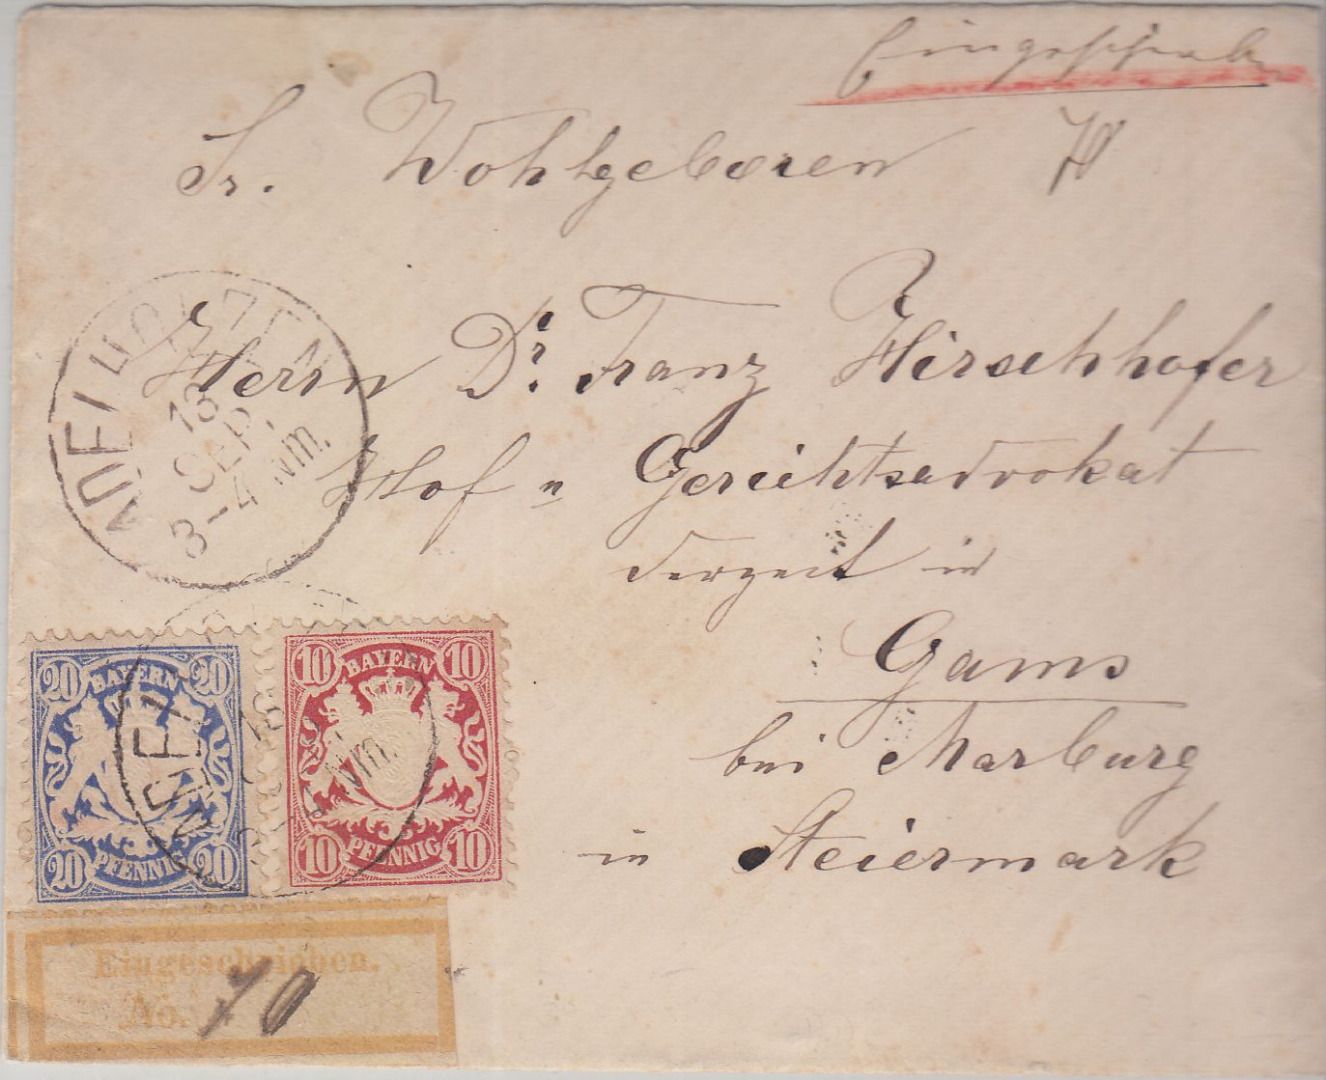 Eingeschrieben
Sr. Wohlgeboren 70
Herrn Dr. Franz Hirschhofer
Hof u Gerichtsadvokat
derzeit in
Gams
bei Marburg
in Steiermark
ADELHOLZEN
13
SEP.
3-4 Nm.
20 BAYERN 20
20 PFENNIG 20
10 BAYERN 10
10 PFENNIG 10
13
Nm.
Eingeschrieben.
No. 70